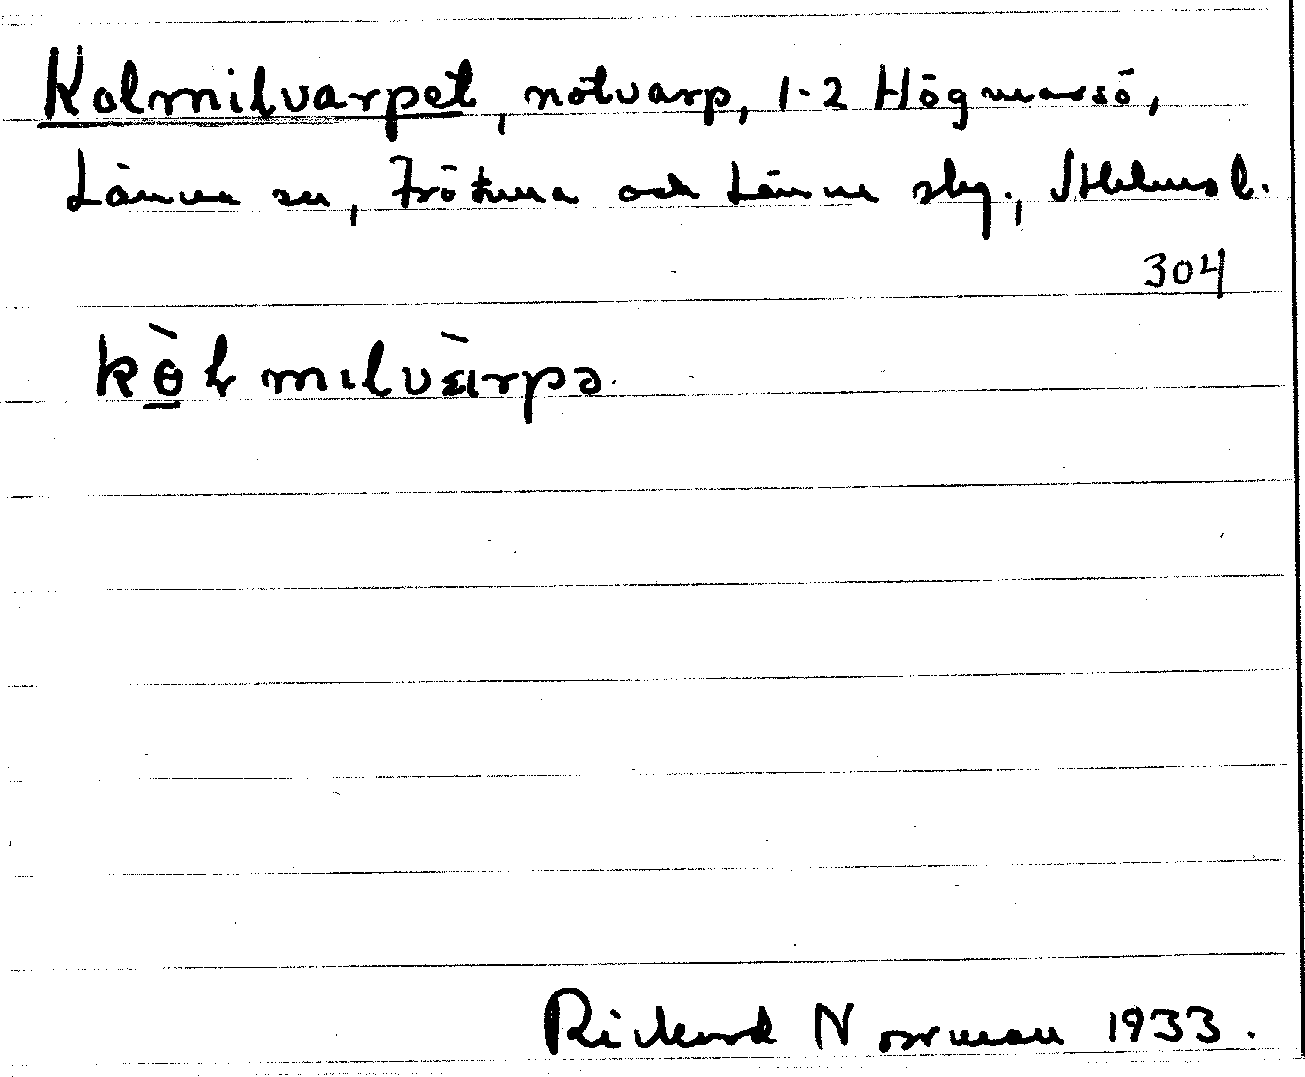 Kolmilvarpet, notvarp, 1-2 Högmarsö,
Länna sn, Frötuna och Länna skg., Sthlms l.
304
kɵ̀lmilvàrpə.
Rickard Norman 1933.